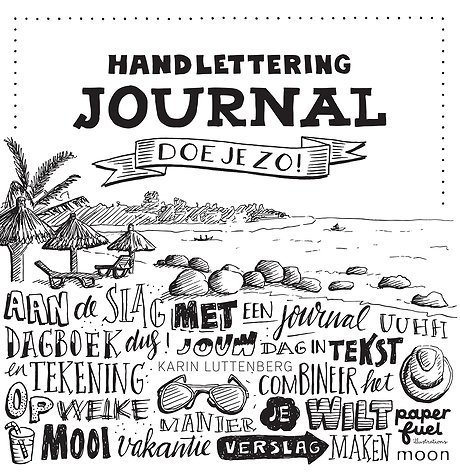 HANDLETTERING
JOURNAL
DOE JE ZO!
AAN de SLAG MET EEN journal UUHH
DAGBOEK dus! JOUW DAG IN TEKST
en TEKENING KARIN LUTTENBERG COMBINEER het
OP WELKE MANIER JE WILT
MOOI vakantie VERSLAG MAKEN
paper
fuel
illustrations
moon